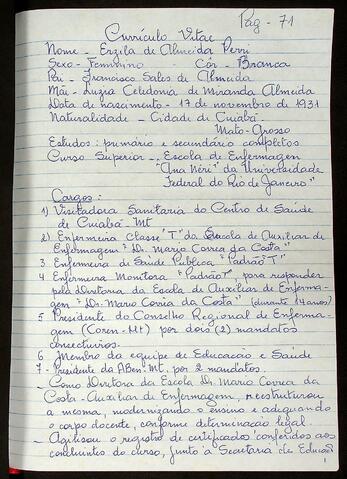 Pág - 71
Currículo Vitae
Nome - Erzila de Almeida Perri
Sexo - Feminino - Côr - Branca
Pai - Francisco Sales de Almeida
Mãi - Luzia Celedonia de Miranda Almeida
Data de nascimento - 17 de novembro de 1931
Naturalidade - Cidade de Cuiabá -
Mato-Grosso
Estudos: primário e secundário completos
Curso Superior - Escola de Enfermagem
"Ana Néri" da Universidade
Federal do Rio de Janeiro"
Cargos:
1) Visitadora Sanitaria do Centro de Saúde
de Cuiabá - Mt
2) Enfermeira Classe "T" da Escola de Auxiliar de
Enfermagem "Dr. Mario Correa da Costa"
3 Enfermeira de Saúde Pública "Padrão T"
4 Enfermeira Monitora "Padrão T", para responder
pela Diretoria da Escola de Auxiliar de Enferma-
gem "Dr. Mario Correa da Costa" (durante 14 anos)
5 Presidente do Conselho Regional de Enferma-
gem (Coren-Mt) por dois (2) mandatos
consecutivos.
6 Membro da equipe de Educação e Saúde
7 - Presidente da ABEn-Mt. por 2 mandatos.
- Como Diretora da Escola Dr. Mario Correa da
Costa - Auxiliar de Enfermagem, reestruturou
a mesma, modernizando o ensino e adequando
o corpo docente, conforme determinação legal.
- Agilisou o registro de certificados conferidos aos
concluintes do curso, junto à Secretaria de Educação